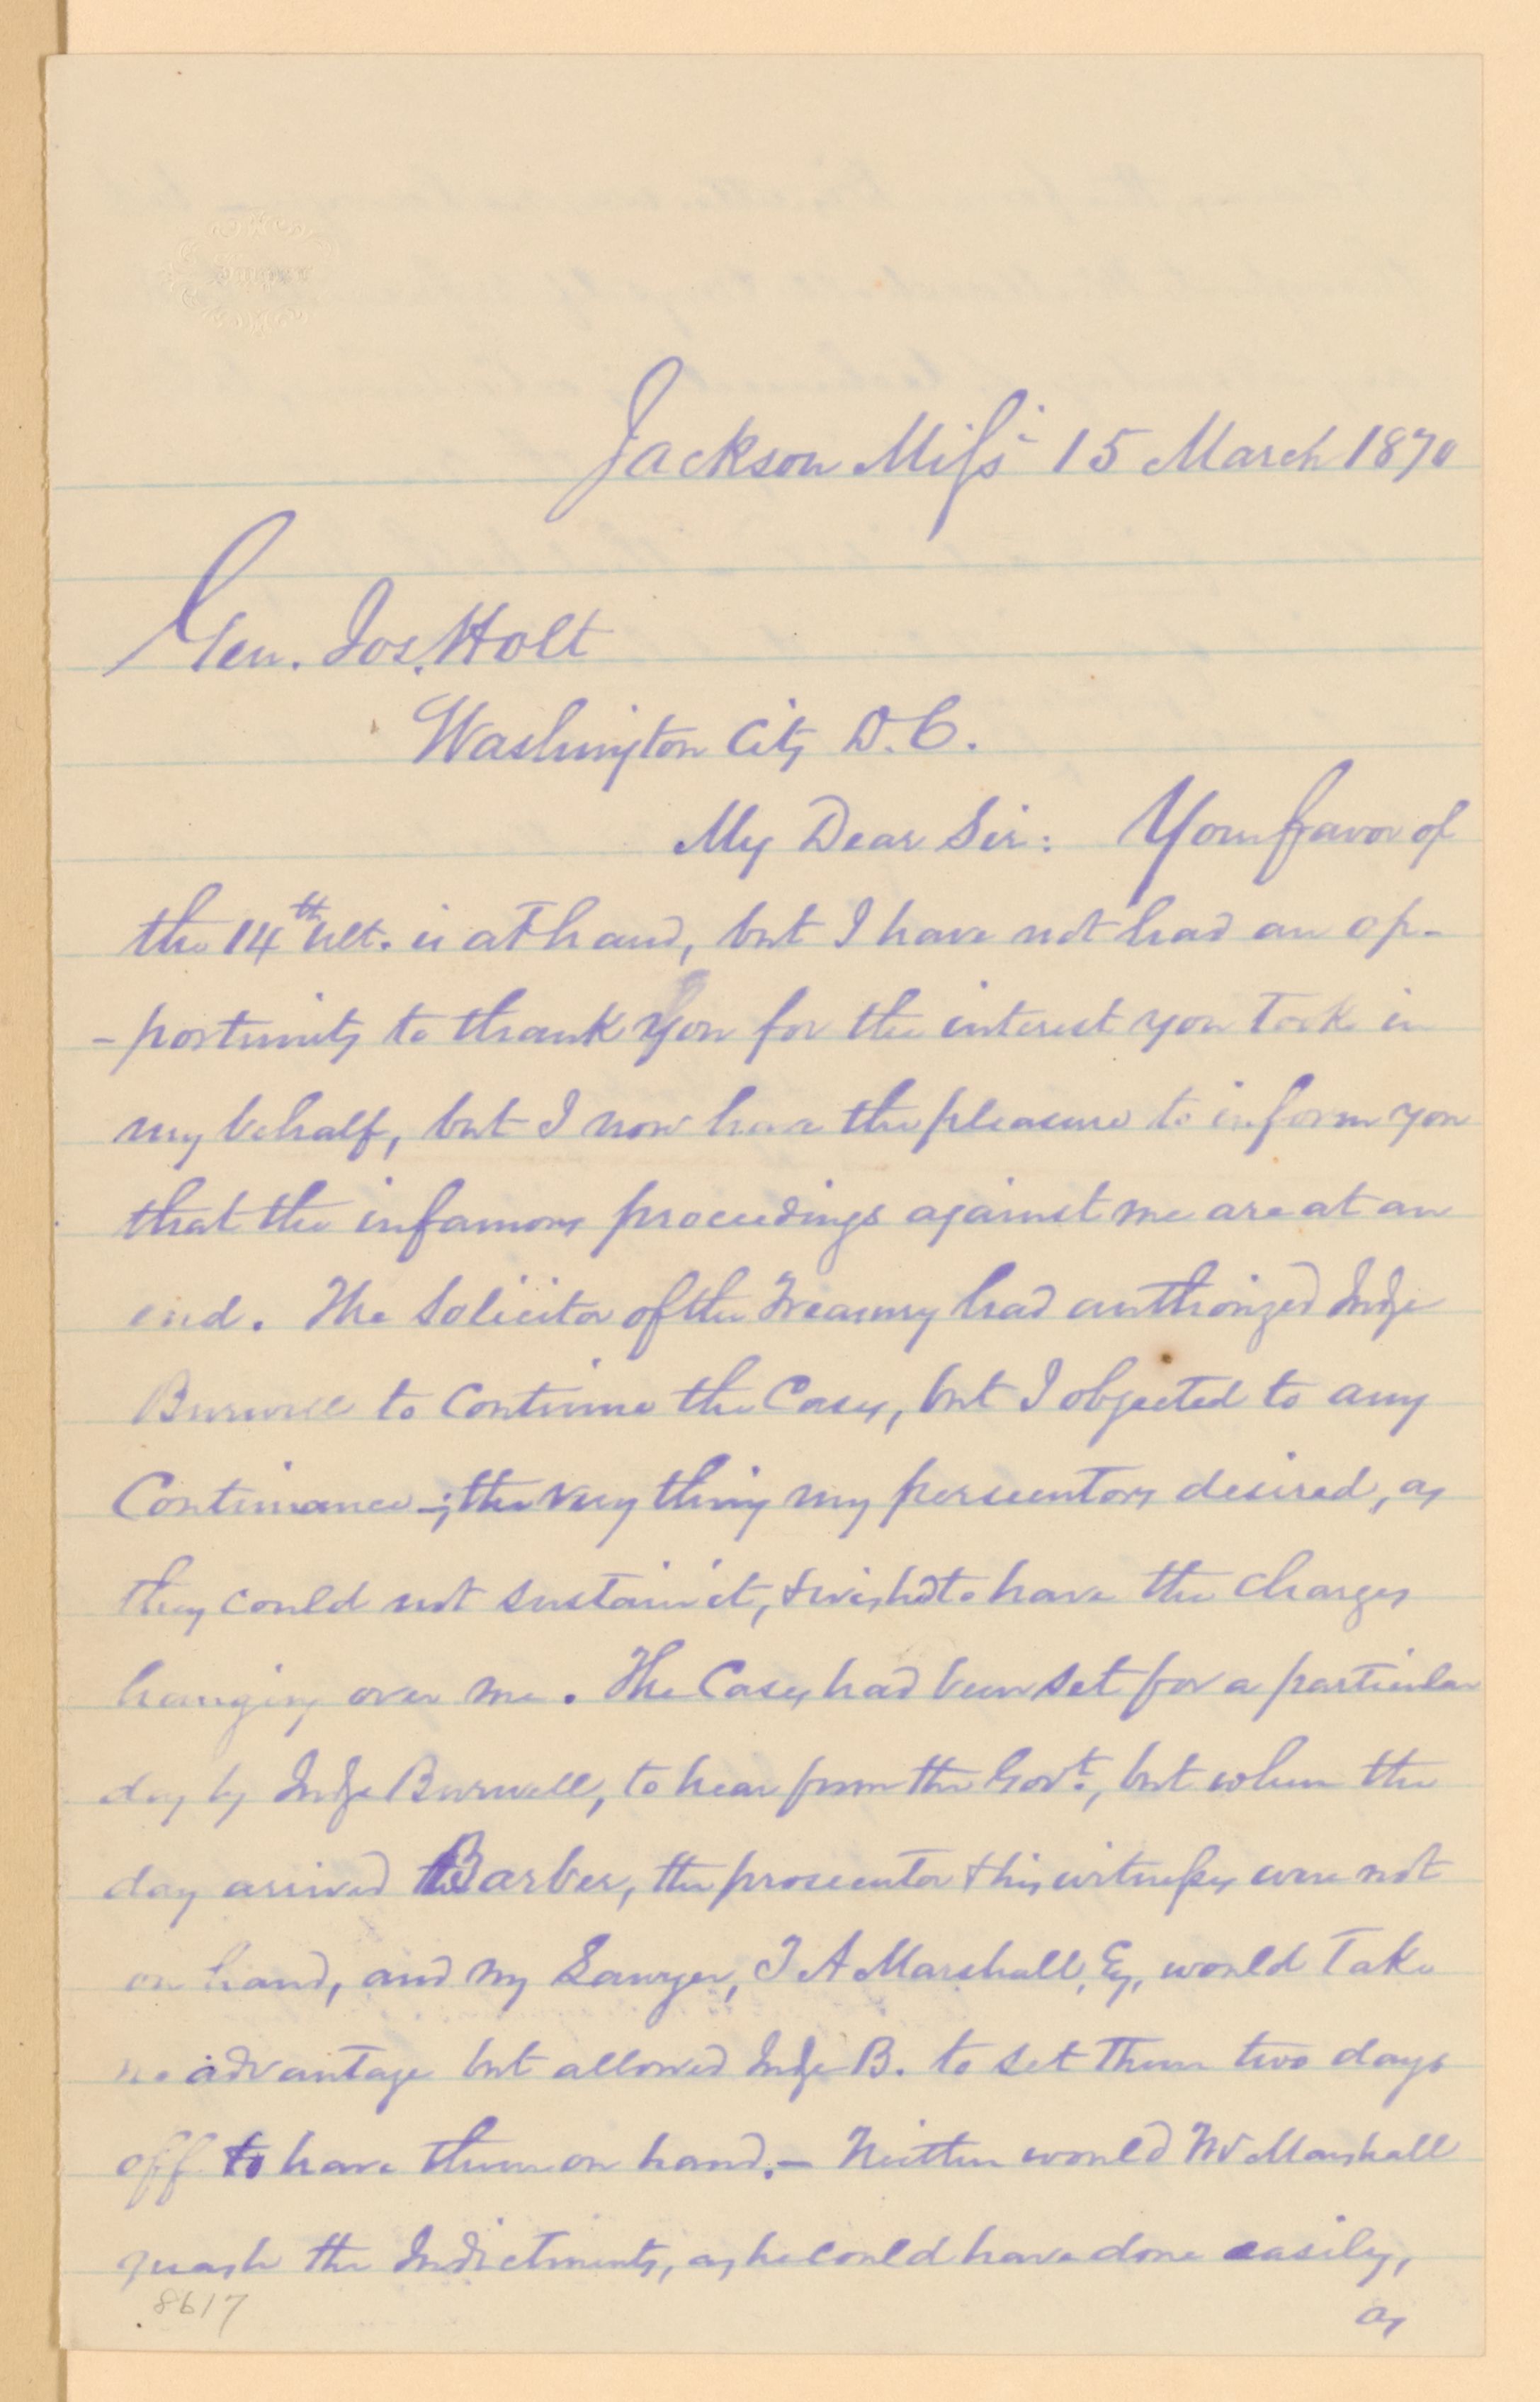 Jackson Miss 15 March 1870
Gen. Jos. Holt
Washington City D.C.
My Dear Sir: Your favor of
the 14th ult. is at hand, but I have not had an op-
-portunity to thank you for the interest you took in
my behalf, but I now have the pleasure to inform you
that the infamous proceedings against me are at an
end. The Solicitor of the Treasury had authorized Judge
Burwell to Continue the Cases, but I objected to any
Continuance -; the very thing my persecutors desired, as
they could not sustain it, & wish'd to have the charges
hanging over me. The Cases had been set for a particular
day by Judge Burwell, to hear from the Govt., but when the
day arrived Barber, the prosecutor & his witnesses were not
on hand, and my Lawyer, T A Marshall, Esq, would take
no advantage but allowed Judge B. to set them two days
off to have them on hand. - Neither would Mr Marshall
quash the Indictments, as he could have done easily,
as
8617